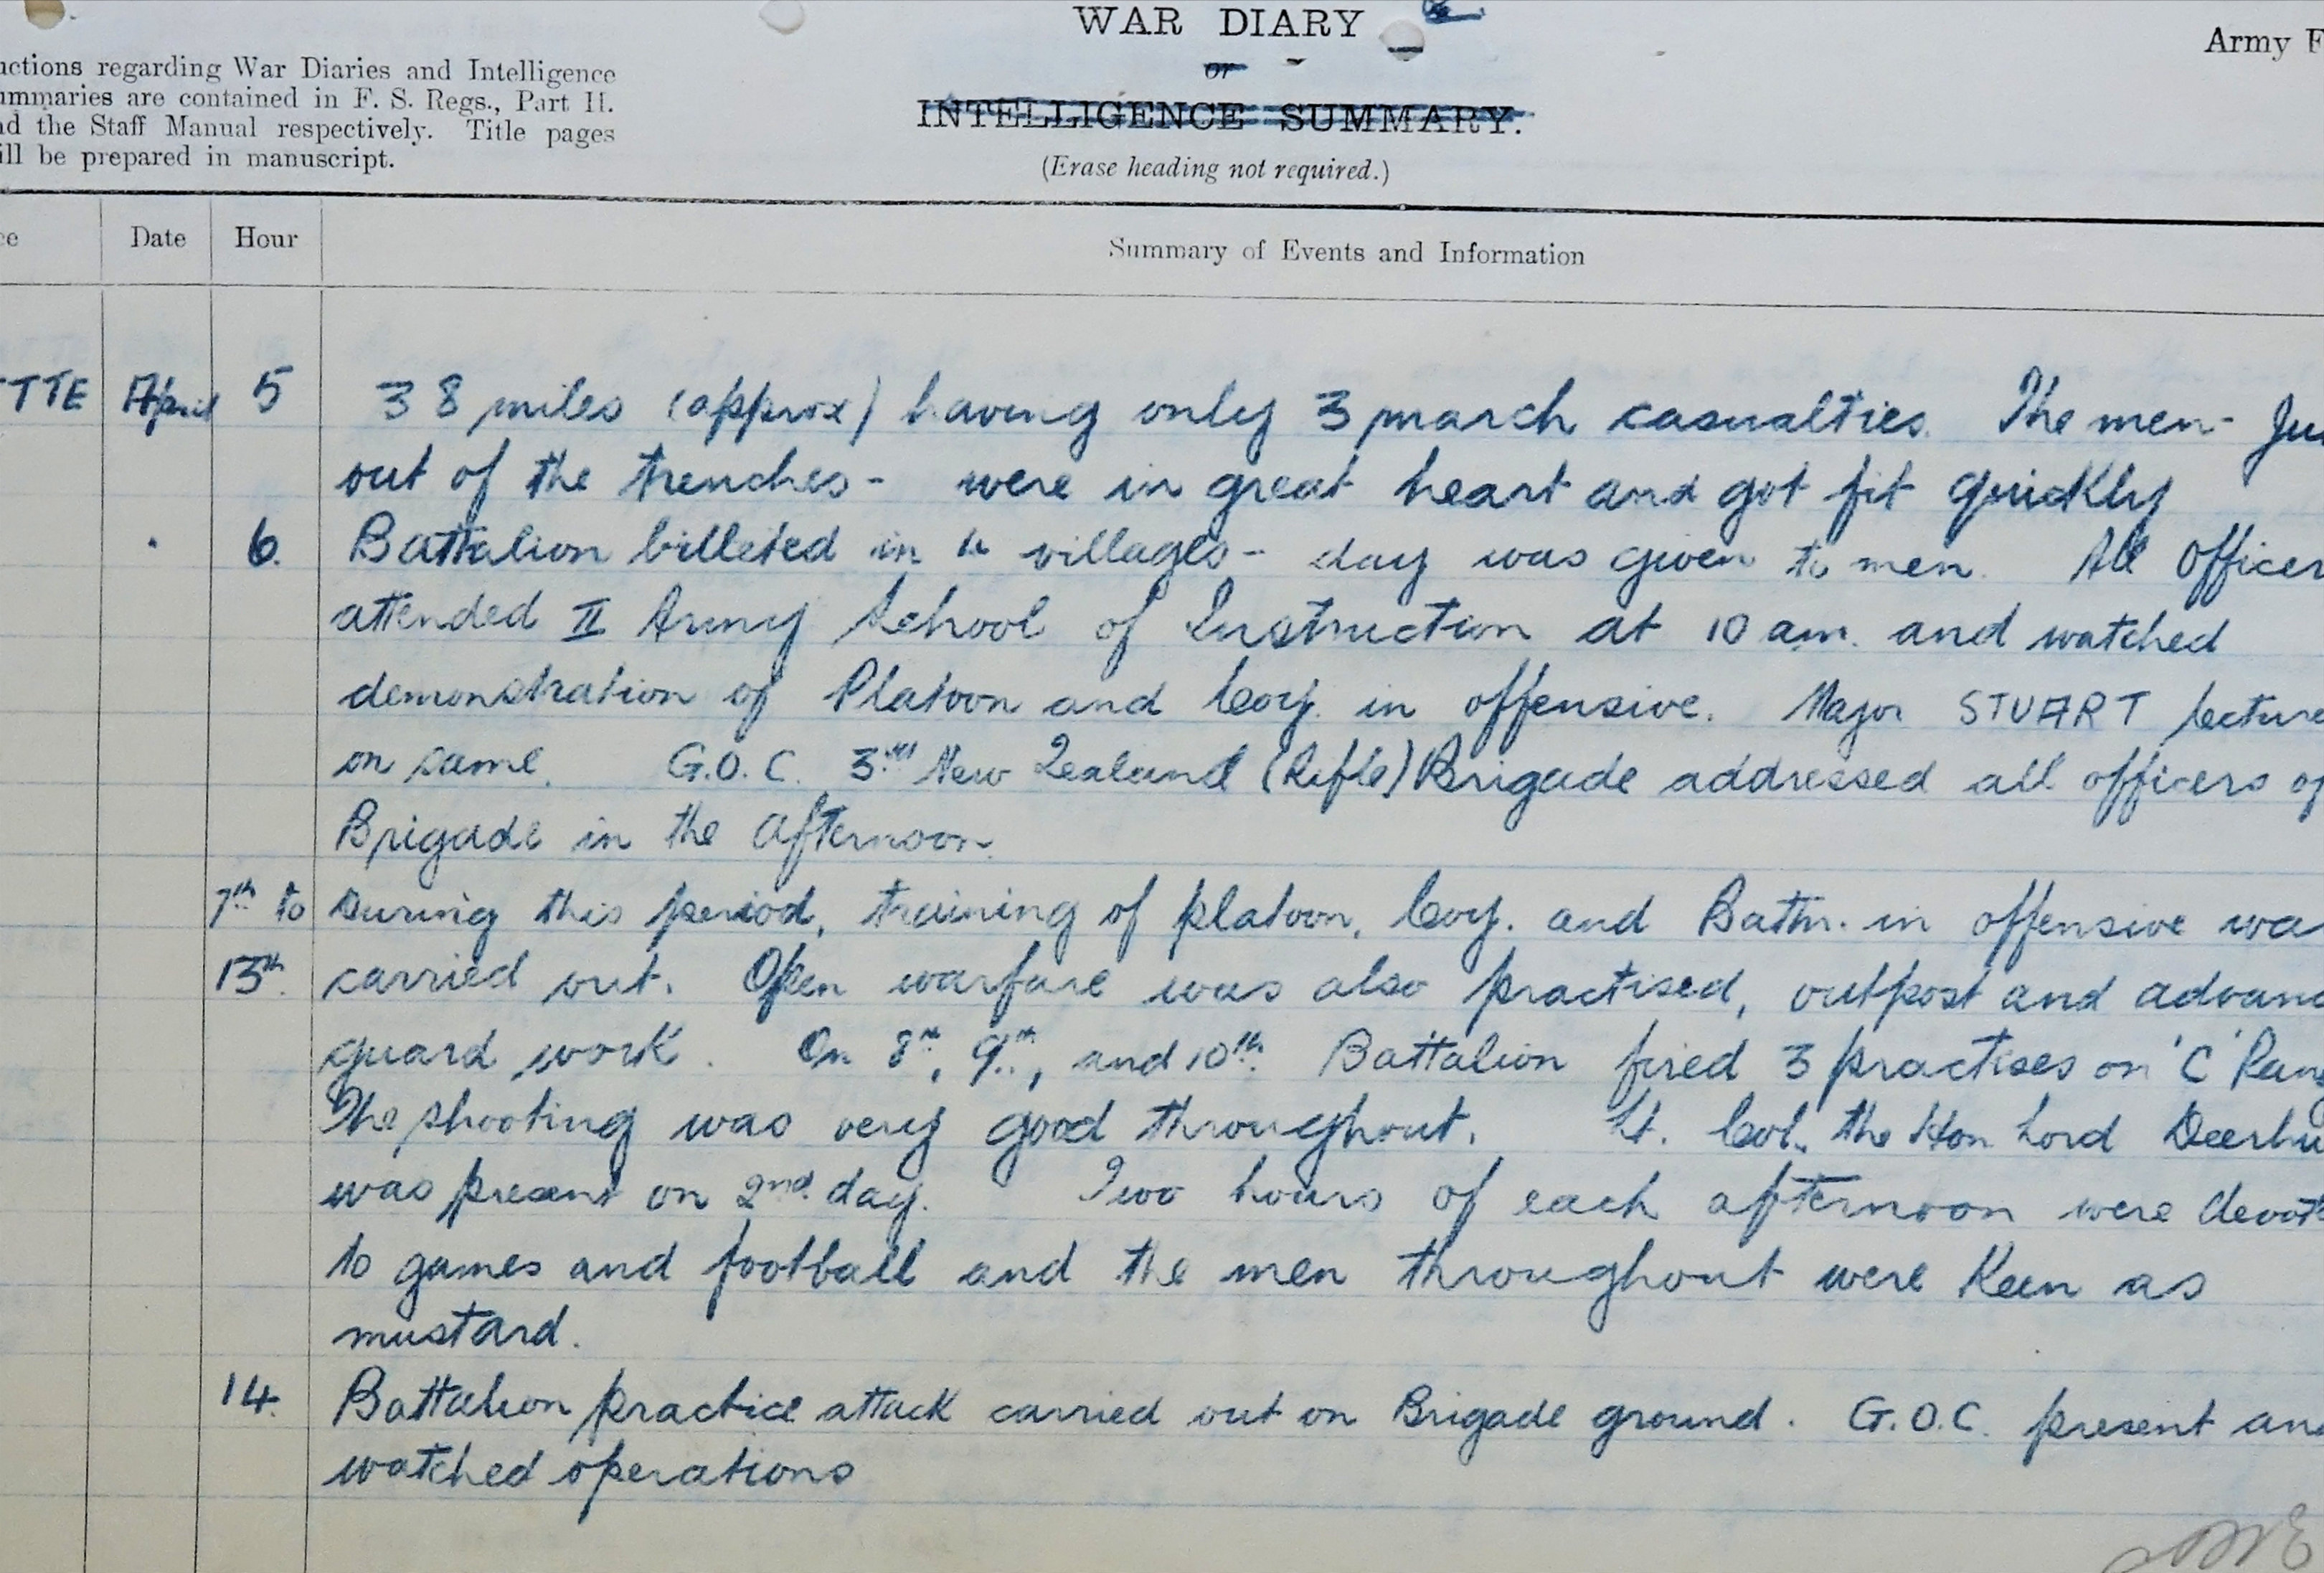 WAR DIARY
Army F
or
INTELLIGENCE SUMMARY.
(Erase heading not required.)
uctions regarding War Diaries and Intelligence
ummaries are contained in F. S. Regs., Part II.
nd the Staff Manual respectively. Title pages
ill be prepared in manuscript.
ce Date Hour Summary of Events and Information
TTE April 5 38 miles (approx) having only 3 march casualties. The men - Jus
out of the trenches - were in great heart and got fit quickly
6. Battalion billeted in 4 villages - day was given to men. All Officer
attended II Army School of Instruction at 10 am. and watched
demonstration of Platoon and Coy. in offensive. Major STUART lecture
on same. G.O.C. 3rd New Zealand (Rifle) Brigade addressed all officers of
Brigade in the afternoon.
7th to During this period, training of platoon, Coy. and Battn. in offensive wa
13th. carried out. Open warfare was also practised, outpost and advanc
guard work. On 8th, 9th, and 10th. Battalion fired 3 practises on 'C' Rang
The shooting was very good throughout. Lt. Col. the Hon Lord Deerhu
was present on 2nd. day. Two hours of each afternoon were devote
to games and football and the men throughout were keen as
mustard.
14. Battalion practice attack carried out on Brigade ground. G.O.C. present and
watched operations